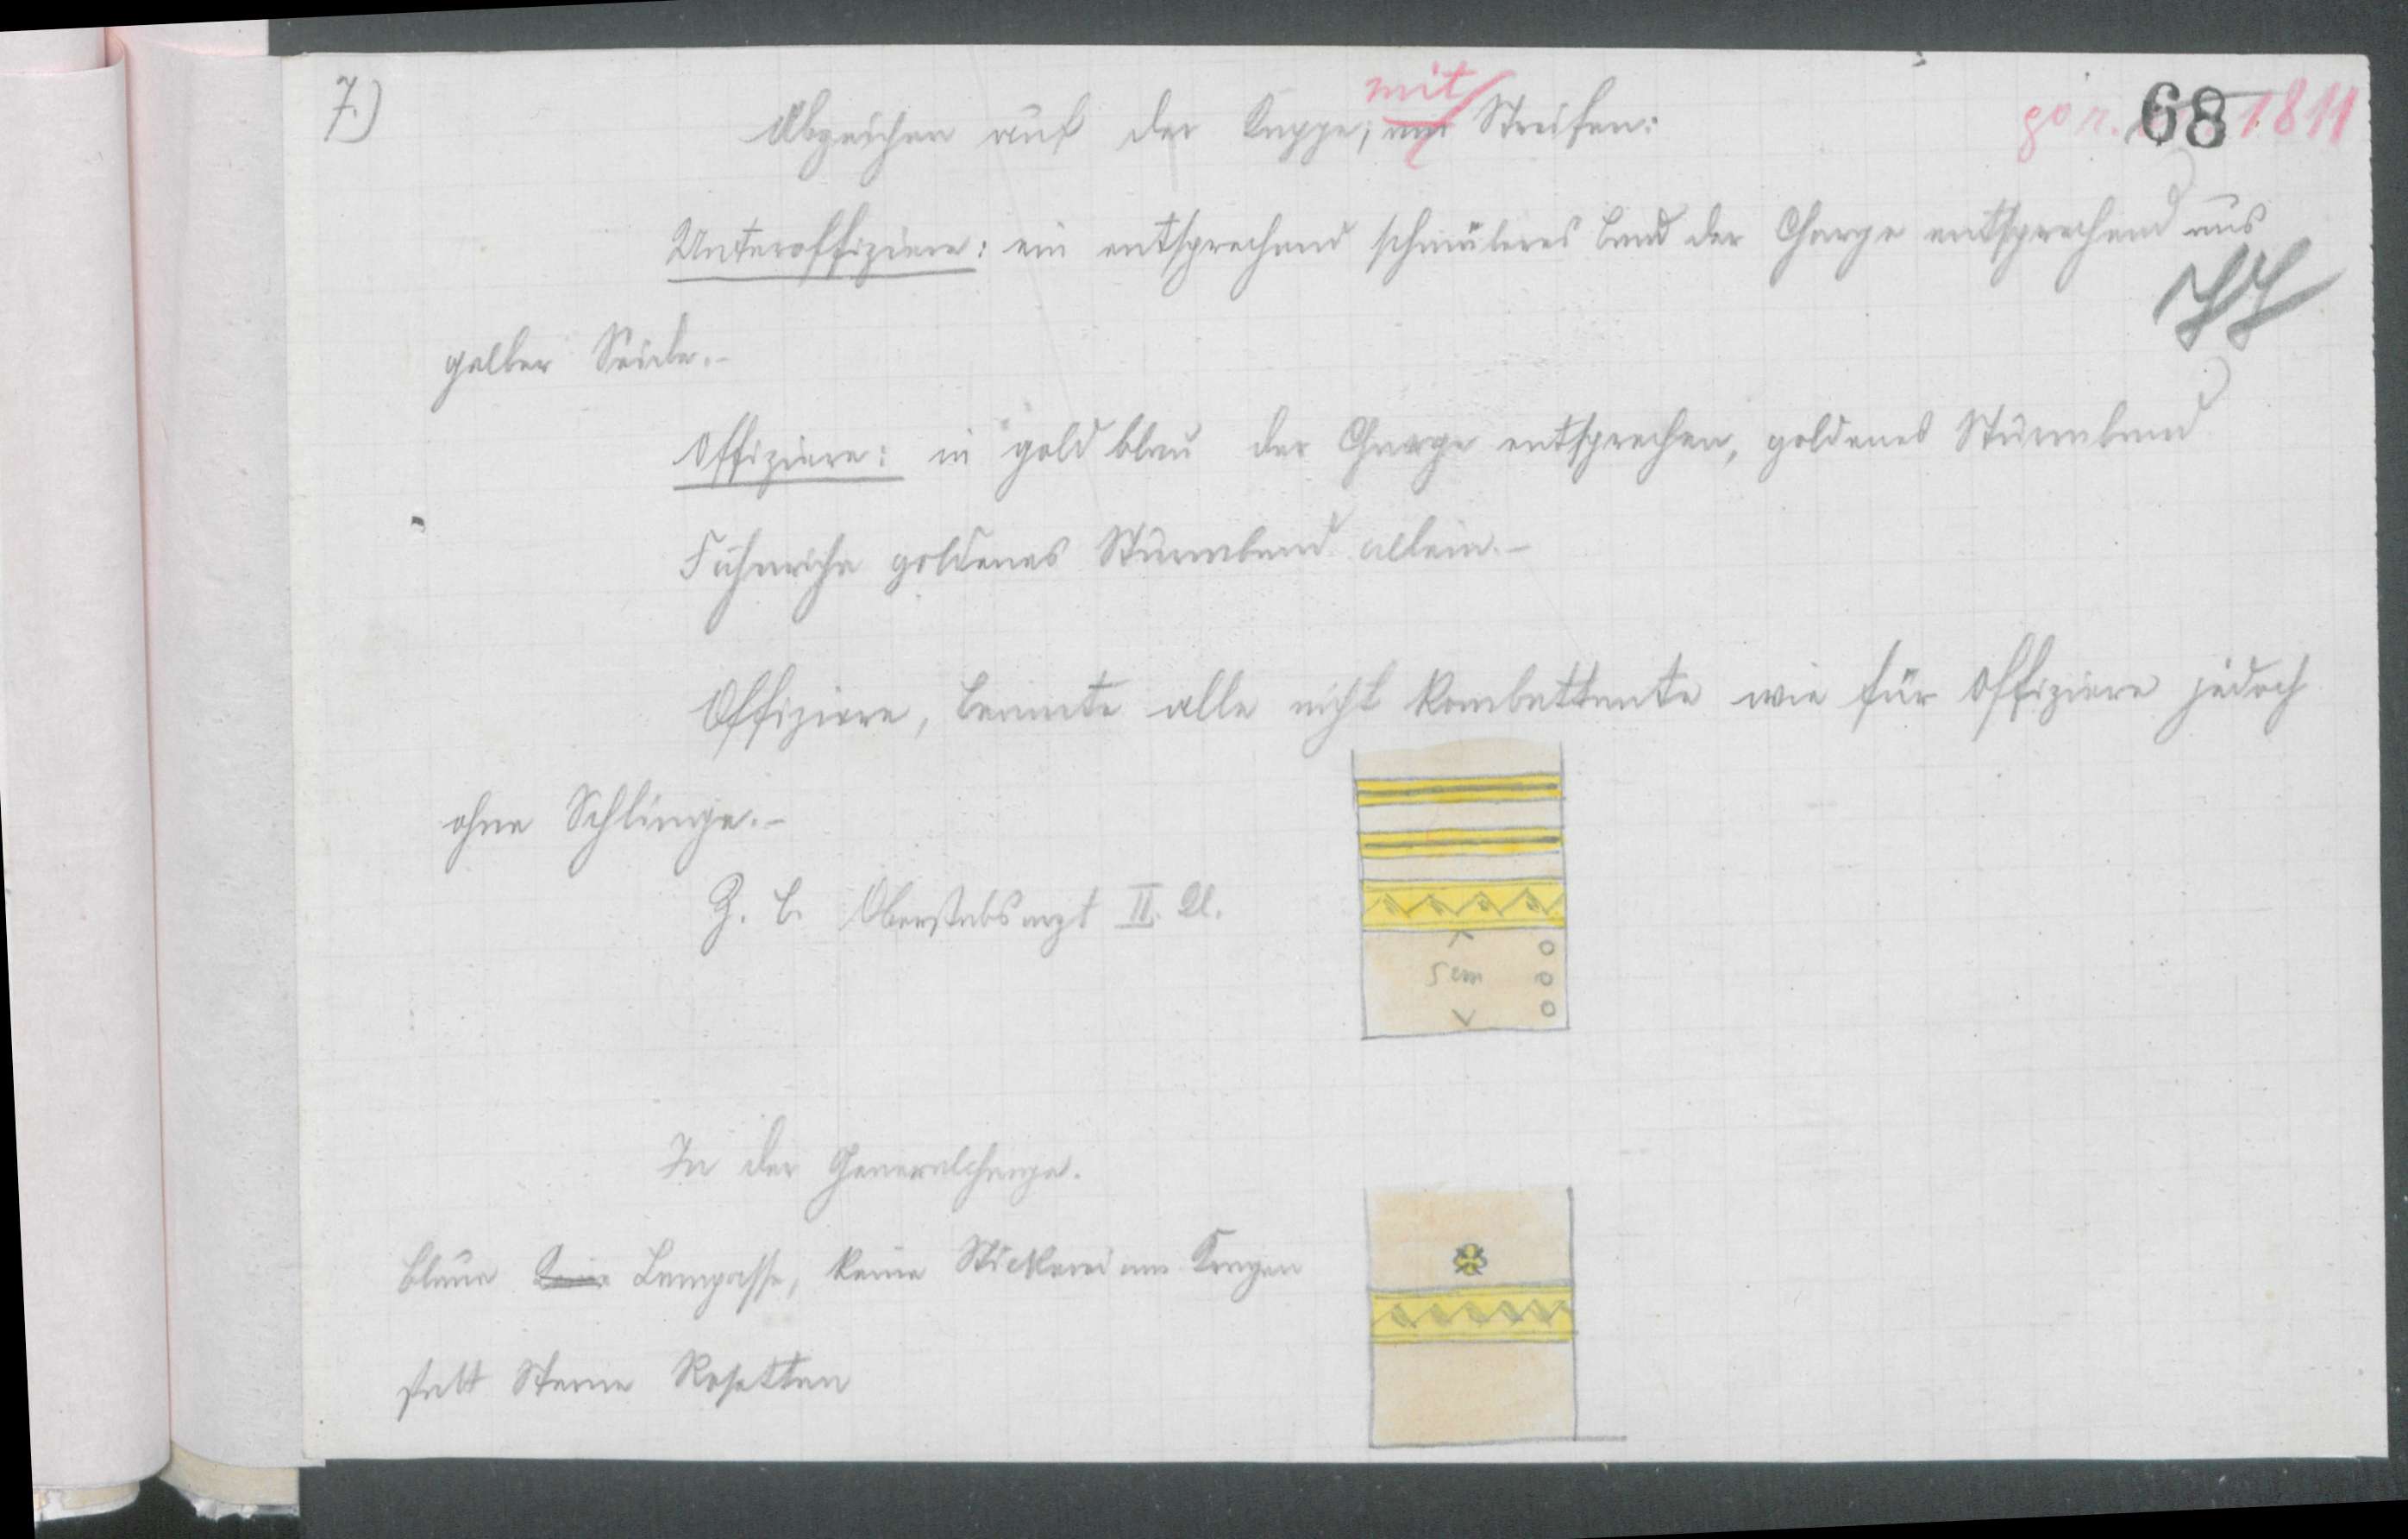 7.)
68
gör. 1811
mit
Abzeichen auf der Kappe; Streifen:
Unteroffiziere: ein entsprechend schmäleres Band der Charge entsprechend aus
gelber Seide.-
Offiziere: in gold blau der Charge entsprechen, goldenes Sturmband
Fähnriche goldenes Sturmband allein.-
Offiziere, Beamte alle nicht Kombattante wie für Offiziere jedoch
ohne Schlinge.-
Z. B. Oberstabsarzt II. Kl.
5 cm
In der Generalcharge.
blaue Lampasse, keine Stickerei am Kragen
statt Sterne Rosetten